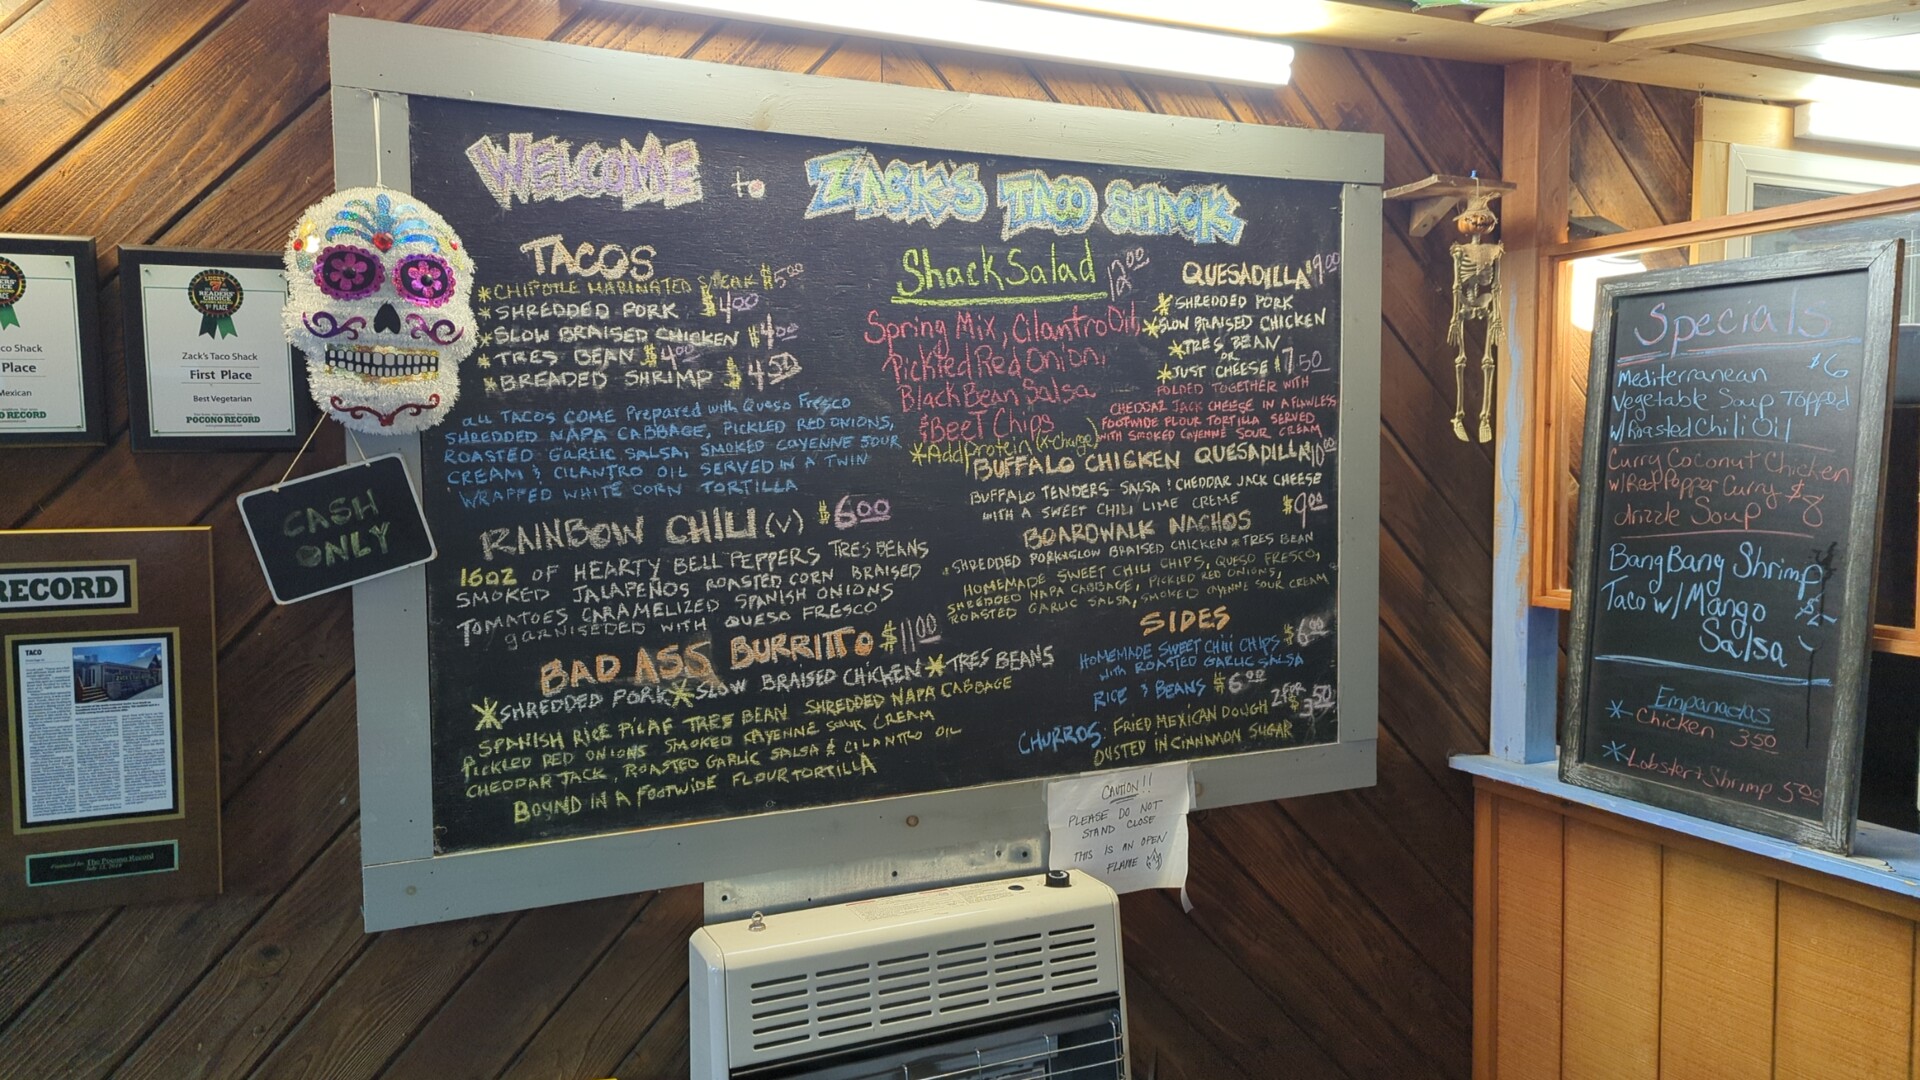 WELCOME to ZACK'S TACO SHACK
TACOS
*CHIPOTLE MARINATED STEAK $5.00
*SHREDDED PORK $4.00
*SLOW BRAISED CHICKEN $4.00
*TRES BEAN $4.00
*BREADED SHRIMP $4.50
all TACOS COME Prepared with Queso Fresco
SHREDDED NAPA CABBAGE, PICKLED RED ONIONS,
ROASTED GARLIC SALSA, SMOKED CAYENNE SOUR
CREAM & CILANTRO OIL SERVED IN A TWIN
WRAPPED WHITE CORN TORTILLA
RAINBOW CHILI (V) $6.00
16oz OF HEARTY BELL PEPPERS TRES BEANS
SMOKED JALAPEÑOS ROASTED CORN BRAISED
TOMATOES CARAMELIZED SPANISH ONIONS
garnisheded WITH QUESO FRESCO
BAD ASS BURRITO $11.00
*SHREDDED PORK *SLOW BRAISED CHICKEN *TRES BEANS
SPANISH RICE PILAF TRES BEAN SHREDDED NAPA CABBAGE
PICKLED RED ONIONS SMOKED CAYENNE SOUR CREAM
CHEDDAR JACK, ROASTED GARLIC SALSA & CILANTRO OIL
BOUND IN A FOOTWIDE FLOUR TORTILLA
Shack Salad 12.00
Spring Mix, Cilantro Oil,
Pickled Red Onion,
Black Bean Salsa
& Beet Chips
*Add Protein (X-Charge)
QUESADILLA $9.00
*SHREDDED PORK
*SLOW BRAISED CHICKEN
*TRES BEAN
OR
*JUST CHEESE $7.50
FOLDED TOGETHER WITH
CHEDDAR JACK CHEESE IN A FLAWLESS
FOOTWIDE FLOUR TORTILLA SERVED
WITH SMOKED CAYENNE SOUR CREAM
BUFFALO CHICKEN QUESADILLA $10.00
BUFFALO TENDERS SALSA & CHEDDAR JACK CHEESE
WITH A SWEET CHILI LIME CREME
BOARDWALK NACHOS $9.00
*SHREDDED PORK *SLOW BRAISED CHICKEN *TRES BEAN
HOMEMADE SWEET CHILI CHIPS, QUESO FRESCO,
SHREDDED NAPA CABBAGE, PICKLED RED ONIONS,
ROASTED GARLIC SALSA, SMOKED CAYENNE SOUR CREAM
SIDES
HOMEMADE SWEET CHILI CHIPS $6.00
with ROASTED GARLIC SALSA
RICE & BEANS $6.00
CHURROS: FRIED MEXICAN DOUGH 2 FOR $3.50
DUSTED IN CINNAMON SUGAR
CASH
ONLY
co Shack
Place
Mexican
O RECORD
READERS'
CHOICE
1ST PLACE
Zack's Taco Shack
First Place
Best Vegetarian
POCONO RECORD
RECORD
TACO
Presented by: The Pocono Record
CAUTION!!
PLEASE DO NOT
STAND CLOSE
THIS IS AN OPEN
FLAME
Specials
Mediterranean $6
Vegetable Soup Topped
w/ Roasted Chili Oil
Curry Coconut Chicken
w/ Red Pepper Curry $8
drizzle Soup
Bang Bang Shrimp
Taco w/ Mango
Salsa
Empanadas
*Chicken 3.50
*Lobster + Shrimp 5.00